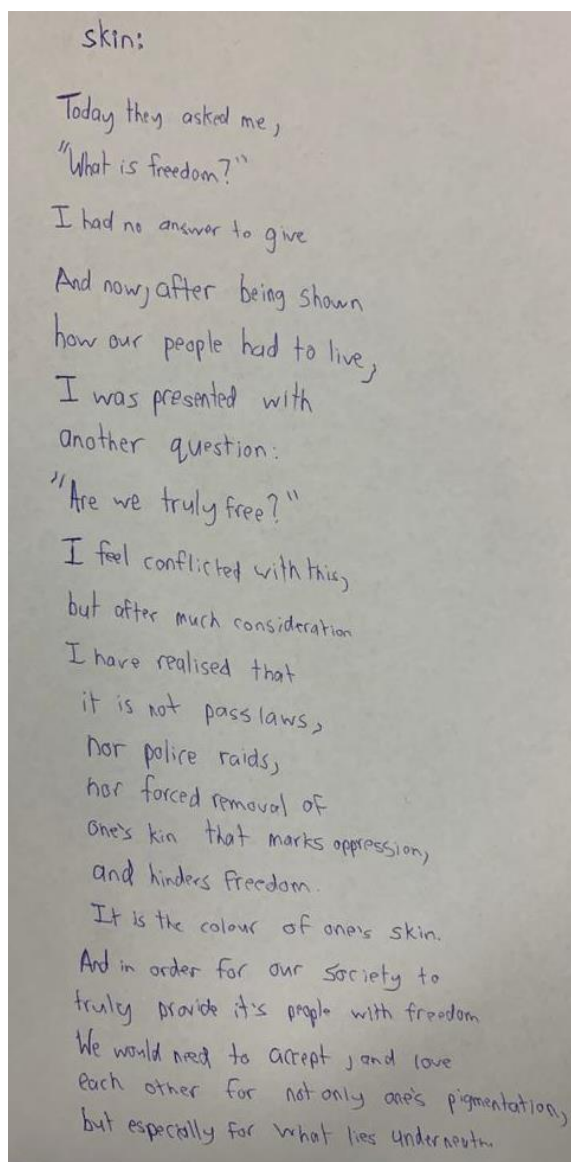 skin:
Today they asked me,
"What is freedom?"
I had no answer to give
And now, after being shown
how our people had to live,
I was presented with
another question:
"Are we truly free?"
I feel conflicted with this,
but after much consideration
I have realised that
it is not pass laws,
nor police raids,
nor forced removal of
one's kin that marks oppression,
and hinders freedom.
It is the colour of one's skin.
And in order for our society to
truly provide it's people with freedom
We would need to accept, and love
each other for not only one's pigmentation,
but especially for what lies underneath.